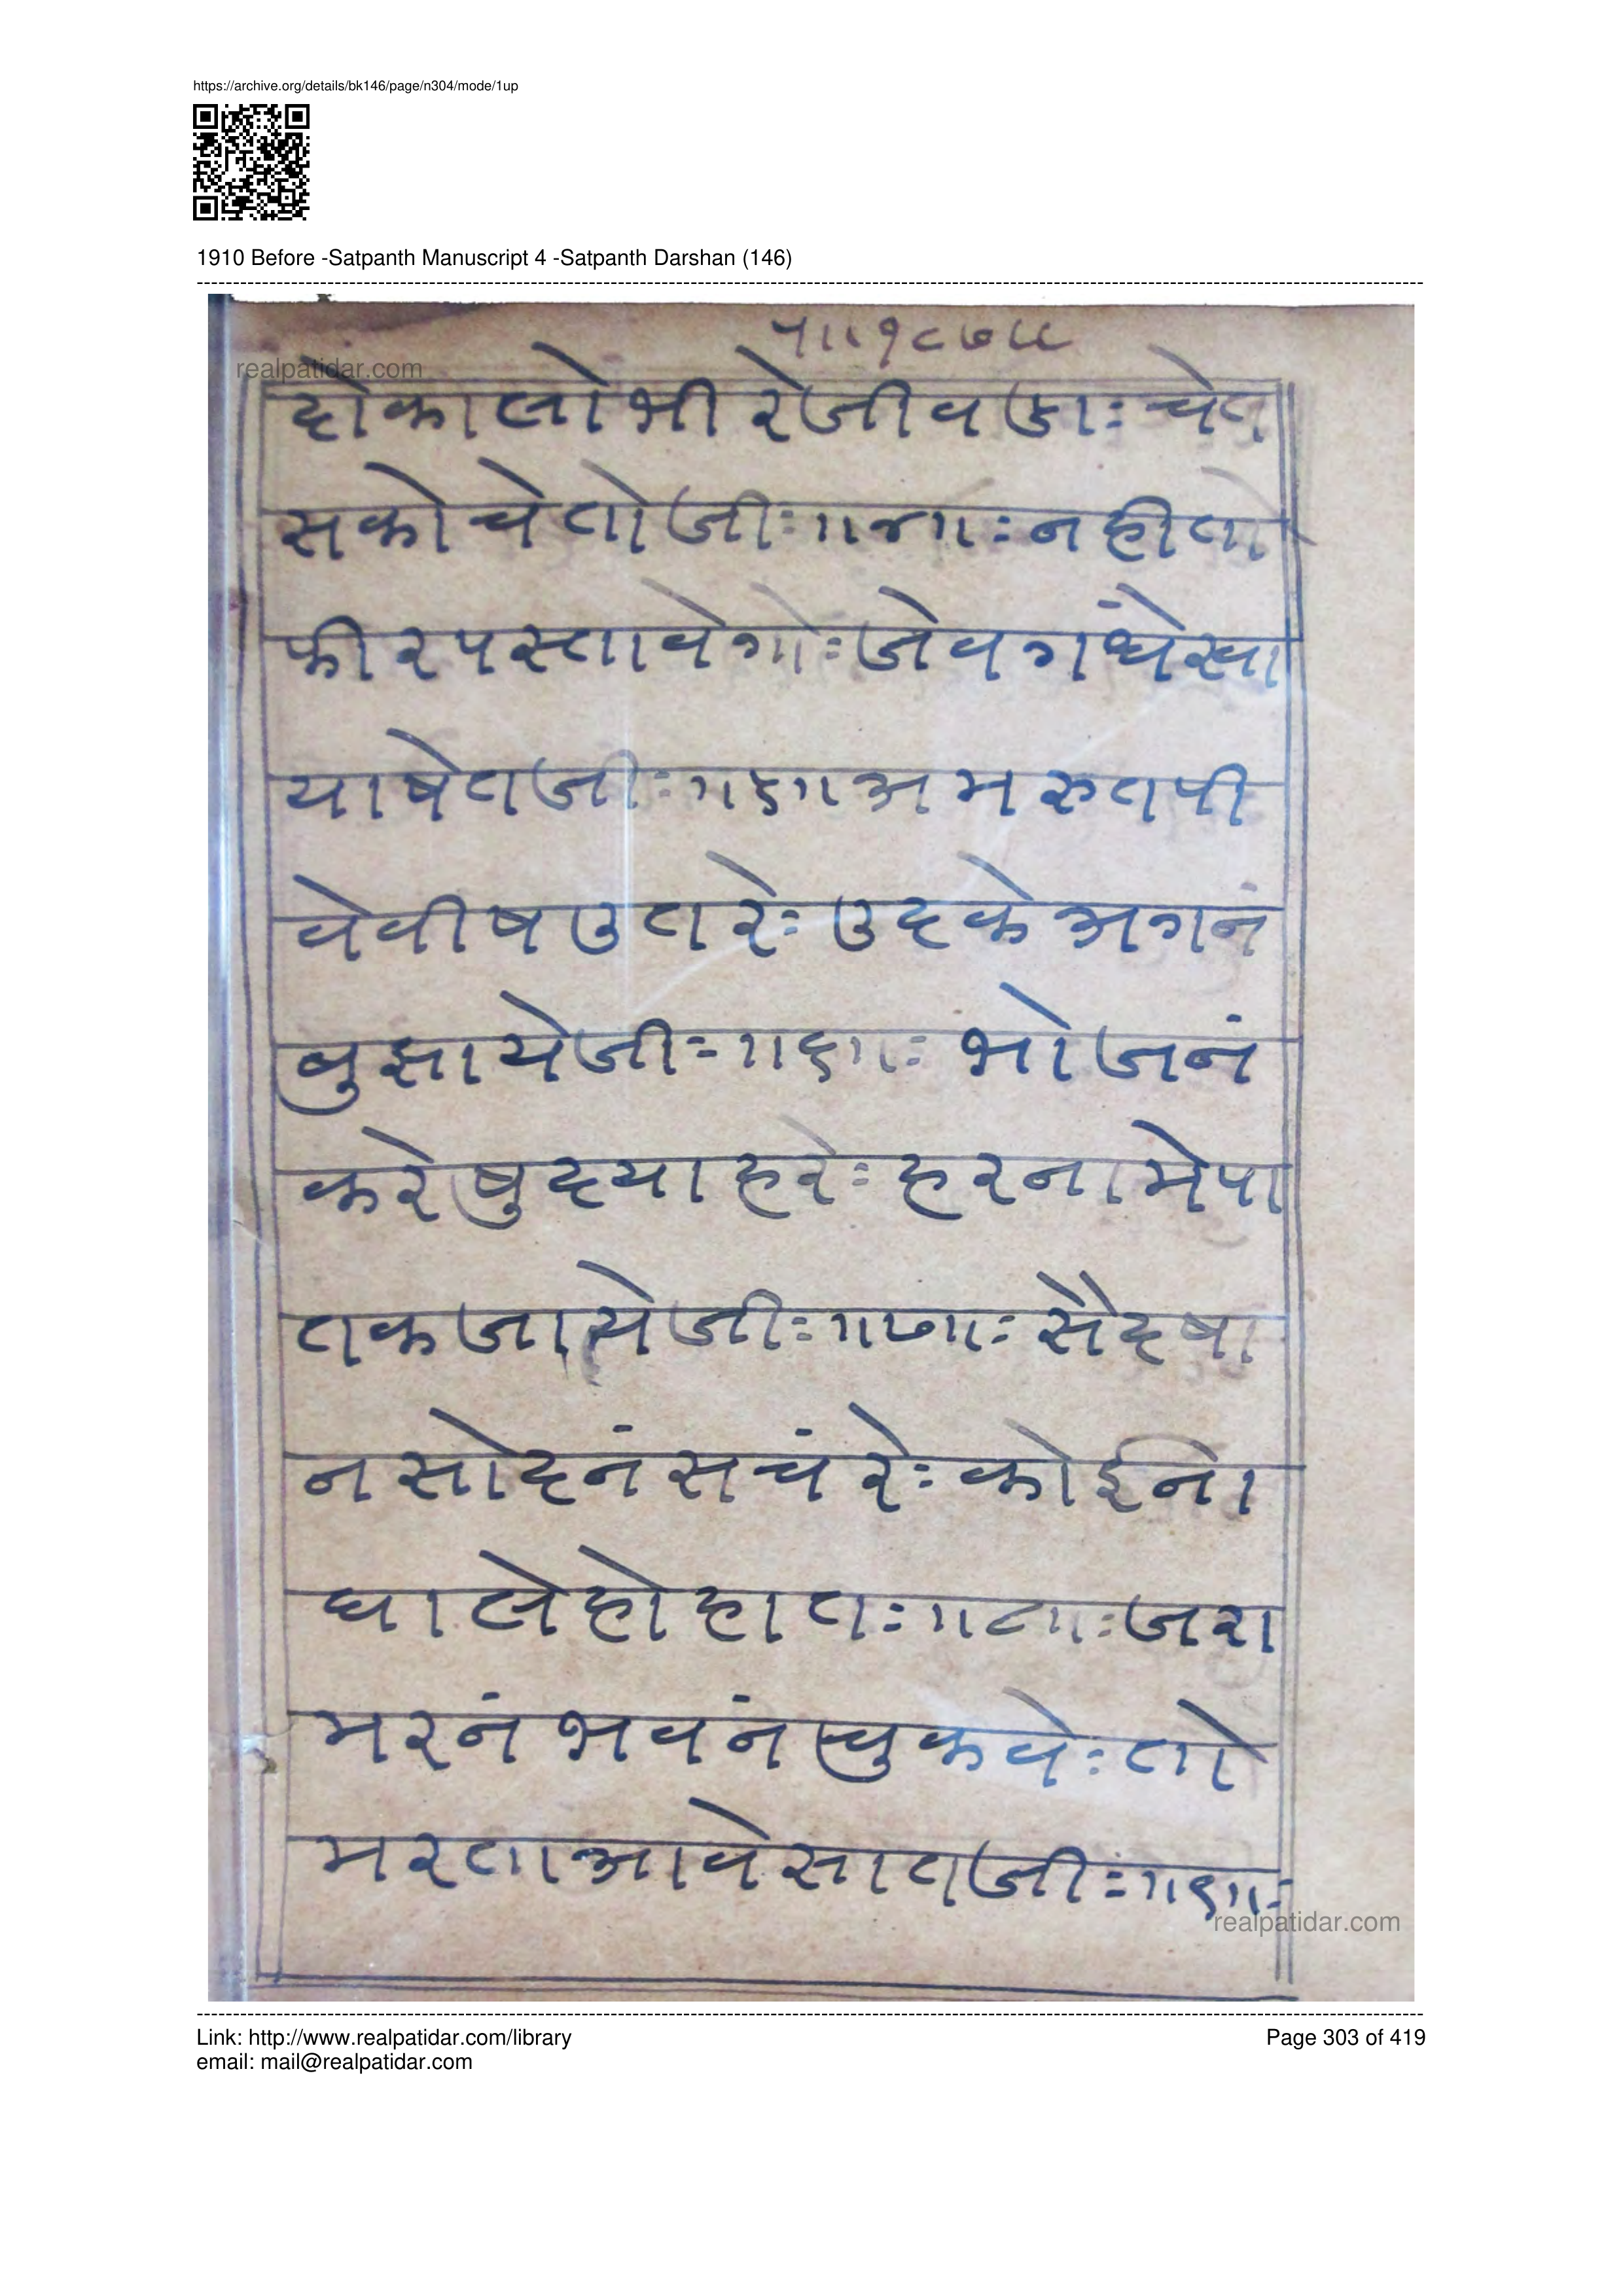 https://archive.org/details/bk146/page/n304/mode/1up
1910 Before -Satpanth Manuscript 4 -Satpanth Darshan (146)
realpatidar.com
दोकालोभी रेजीवडाः चेत
सकोचेतोजीः॥४॥ः नहीतो
फीरपस्तावेगोः जेवगंधेखा
याषेतजीः॥५॥अमरुतपी
वेवीषउतरेः उदकेअगनं
बुझायेजीः॥६॥ः भोजनं
करेषुदयाहरेः हरनामेपा
तकजासेजीः॥७॥ः सैदषा
नसोदनंसचंरेः कोईना
घालेहोहातः॥८॥ः जरा
मरनंभवनंचुकवेः तो
मरताआवेसातजीः॥९॥ः
realpatidar.com
Link: http://www.realpatidar.com/library
Page 303 of 419
email: mail@realpatidar.com